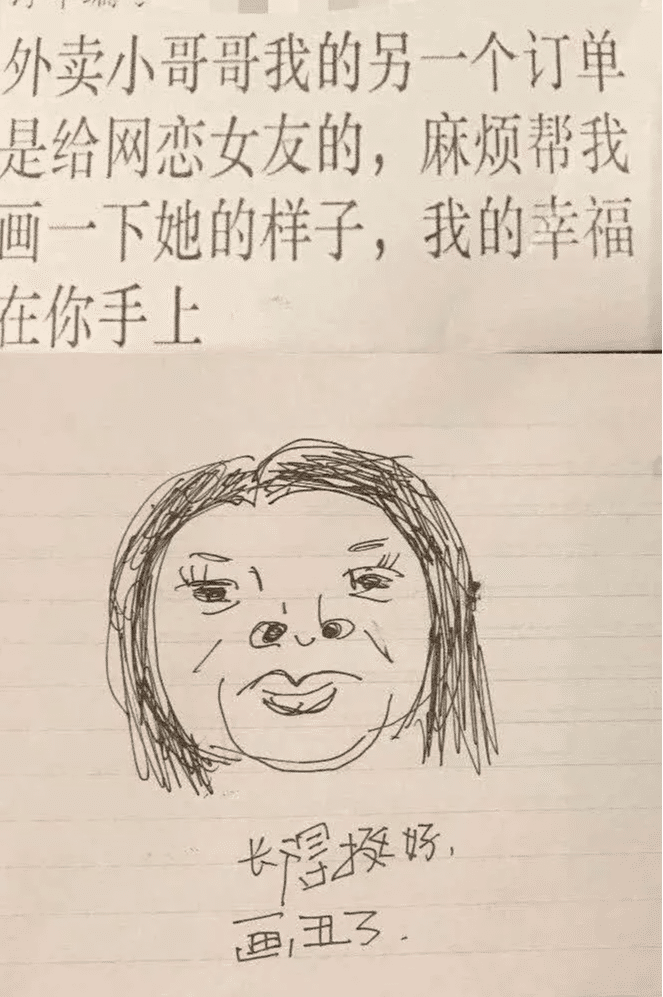 外卖小哥哥我的另一个订单
是给网恋女友的，麻烦帮我
画一下她的样子，我的幸福
在你手上
长得挺好，
画，丑了．